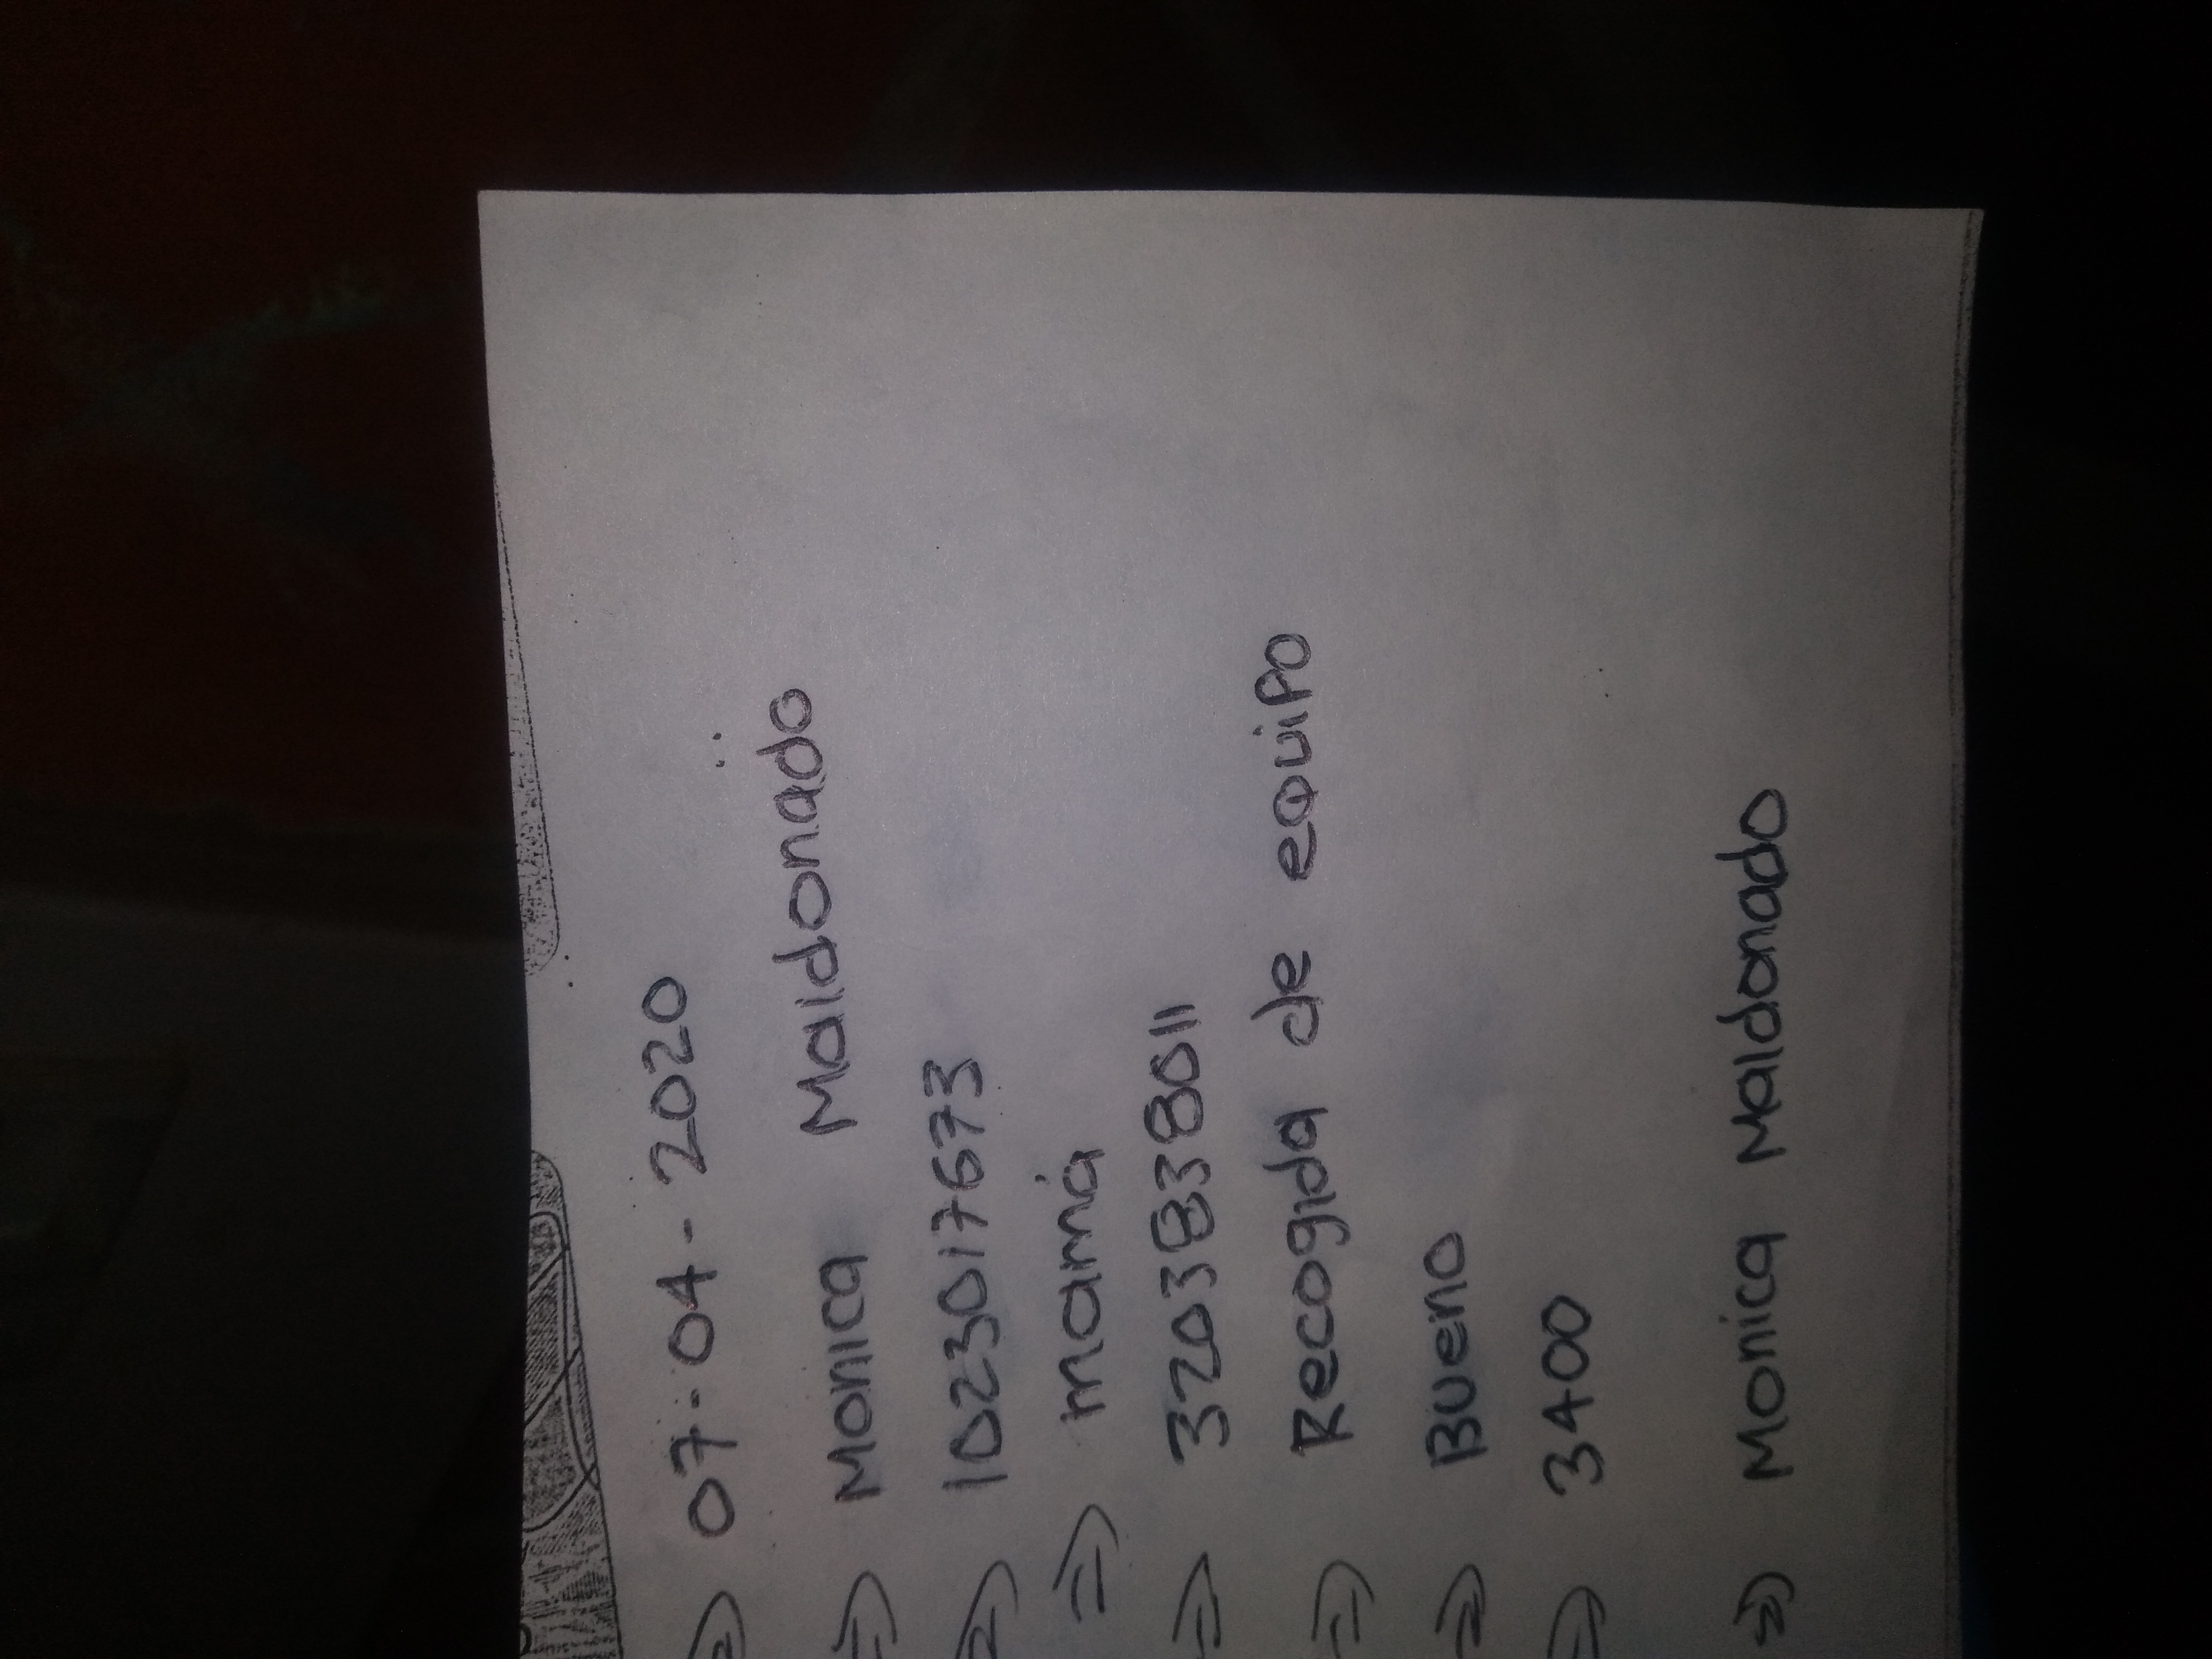 ⇒ 07-04-2020
⇒ Monica Maldonado
⇒ 1023017673
⇒ mamá
⇒ 3203838011
⇒ Recogida de equipo
⇒ Bueno
⇒ 3400
⇒ Monica Maldonado